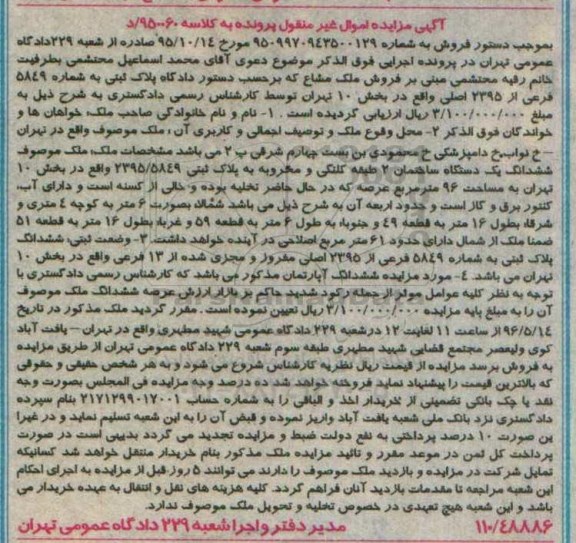 آگهی مزایده اموال غیر منقول پرونده به کلاسه ۹۵۰۰۶۰/د
بموجب دستور فروش به شماره ۹۵۰۹۹۷۰۹۴۳۵۰۰۱۲۹ مورخ ۹۵/۱۰/۱۴ صادره از شعبه ۲۲۹ دادگاه
عمومی تهران در پرونده اجرایی فوق الذکر موضوع دعوی آقای محمد اسماعیل محتشمی بطرفیت
خانم رقیه محتشمی مبنی بر فروش ملک مشاع که برحسب دستور دادگاه پلاک ثبتی به شماره ۵۸۴۹
فرعی از ۲۳۹۵ اصلی واقع در بخش ۱۰ تهران توسط کارشناس رسمی دادگستری به شرح ذیل به
مبلغ ۳/۱۰۰/۰۰۰/۰۰۰ ریال ارزیابی گردیده است . ۱- نام و نام خانوادگی صاحب ملک: خواهان ها و
خواندگان فوق الذکر ۲- محل وقوع ملک و توصیف اجمالی و کاربری آن : ملک موصوف واقع در تهران
– خ نواب.خ دامپزشکی خ محمودی بن بست چهارم شرقی پ ۲ می باشد مشخصات ملک: ملک موصوف
ششدانگ یک دستگاه ساختمان ۲ طبقه کلنگی و مخروبه به پلاک ثبتی ۲۳۹۵/۵۸۴۹ واقع در بخش ۱۰
تهران به مساحت ۹۶ مترمربع عرصه که در حال حاضر تخلیه بوده و خالی از کسنه است و دارای آب،
کنتور برق و گاز است و حدود اربعه آن به شرح ذیل می باشد شمالا: بصورت ۶ متر به کوچه ۴ متری و
شرقا: بطول ۱۶ متر به قطعه ۴۹ و جنوبا: به طول ۶ متر به قطعه ۵۹ و غربا: بطول ۱۶ متر به قطعه ۵۱
ضمنا ملک از شمال دارای حدود ۶۱ متر مربع اصلاحی در آینده خواهد داشت. ۳- وضعت ثبتی: ششدانگ
پلاک ثبتی به شماره ۵۸۴۹ فرعی از ۲۳۹۵ اصلی مفروز و مجزی شده از ۱۳ فرعی واقع در بخش ۱۰
تهران می باشد. ۴- مورد مزایده ششدانگ آپارتمان مذکور می باشد که کارشناس رسمی دادگستری با
توجه به نظر کلیه عوامل موثر از جمله رکود شدید حاکم بر بازار ارزش عرصه ششدانگ ملک موصوف
آن را به مبلغ پایه مزایده ۳/۱۰۰/۰۰۰/۰۰۰ ریال تعیین نموده است . مقرر گردید ملک مذکور در تاریخ
۹۶/۵/۱۴ از ساعت ۱۱ لغایت ۱۲ درشعبه ۲۲۹ دادگاه عمومی شهید مطهری واقع در تهران – یافت آباد
کوی ولیعصر مجتمع قضایی شهید مطهری طبقه سوم شعبه ۲۲۹ دادگاه عمومی تهران از طریق مزایده
به فروش برسد مزایده از قیمت ریال نظریه کارشناس شروع می شود و به هر شخص حقیقی و حقوقی
که بالاترین قیمت را پیشنهاد نماید فروخته خواهد شد ده درصد وجه مزایده فی المجلس بصورت وجه
نقد یا چک بانکی تضمینی از خریدار اخذ و الباقی را به شماره حساب ۲۱۷۱۲۹۹۰۱۷۰۰۱ بنام سپرده
دادگستری نزد بانک ملی شعبه یافت آباد واریز نموده و قبض آن را به این شعبه تسلیم نماید و در غیرا
ین صورت ۱۰ درصد پرداختی به نفع دولت ضبط و مزایده تجدید می گردد بدیهی است در صورت
پرداخت کل ثمن در موعد مقرر و تائید مزایده ملک مذکور بنام خریدار منتقل خواهد شد کسانیکه
تمایل شرکت در مزایده و بازدید ملک موصوف را دارند می توانند ۵ روز قبل از مزایده به اجرای احکام
این شعبه مراجعه تا مقدمات بازدید آنان فراهم گردد. کلیه هزینه های نقل و انتقال به عهده خریدار می
باشد و این شعبه هیچ تعهدی در خصوص تخلیه و تحویل ملک موصوف ندارد.
۱۱۰/۴۸۸۸۶ مدیر دفتر و اجرا شعبه ۲۲۹ دادگاه عمومی تهران